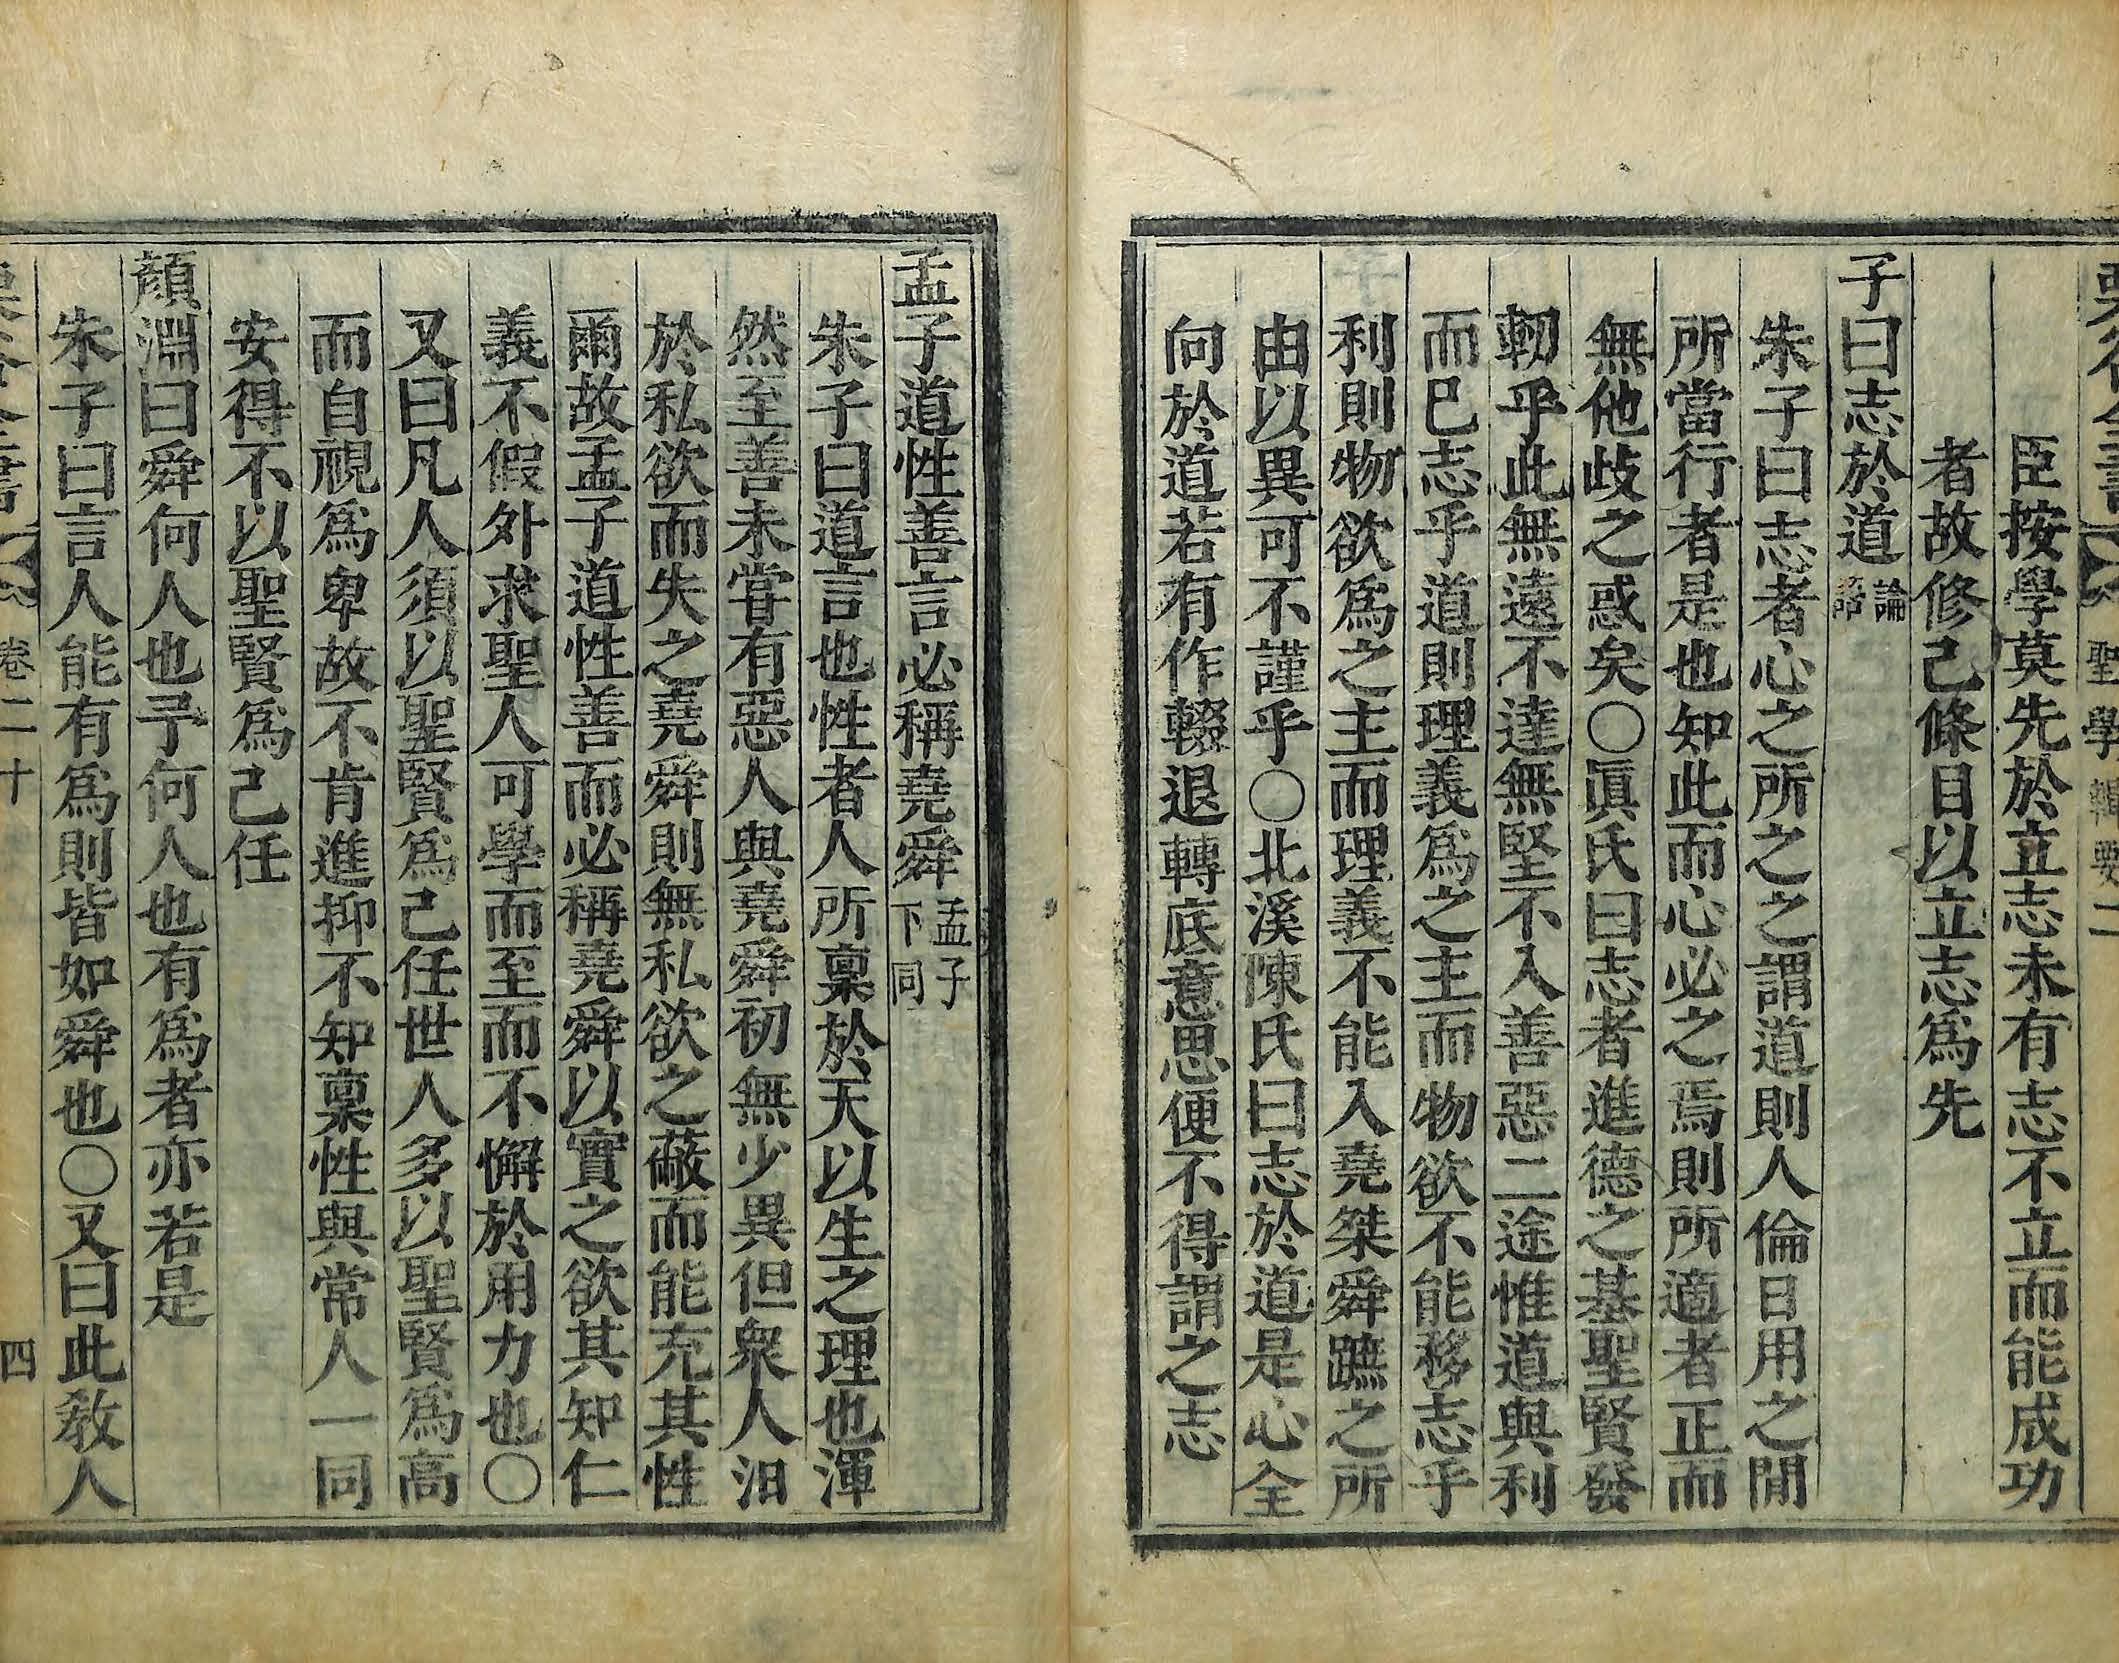 聖學輯要二
臣按學莫先於立志未有志不立而能成功
者故修己條目以立志爲先
子曰志於道論語
朱子曰志者心之所之之謂道則人倫日用之閒
所當行者是也知此而心必之焉則所適者正而
無他歧之惑矣〇眞氏曰志者進德之基聖賢發
軔乎此無遠不達無堅不入善惡二途惟道與利
而已志乎道則理義爲之主而物欲不能移志乎
利則物欲爲之主而理義不能入堯桀舜蹠之所
由以異可不謹乎〇北溪陳氏曰志於道是心全
向於道若有作輟退轉底意思便不得謂之志
孟子道性善言必稱堯舜孟子下同
朱子曰道言也性者人所稟於天以生之理也渾
然至善未嘗有惡人與堯舜初無少異但衆人汩
於私欲而失之堯舜則無私欲之蔽而能充其性
爾故孟子道性善而必稱堯舜以實之欲其知仁
義不假外求聖人可學而至而不懈於用力也〇
又曰凡人須以聖賢爲己任世人多以聖賢爲高
而自視爲卑故不肯進抑不知稟性與常人一同
安得不以聖賢爲己任
顏淵曰舜何人也予何人也有爲者亦若是
朱子曰言人能有爲則皆如舜也〇又曰此敎人
卷二十 四